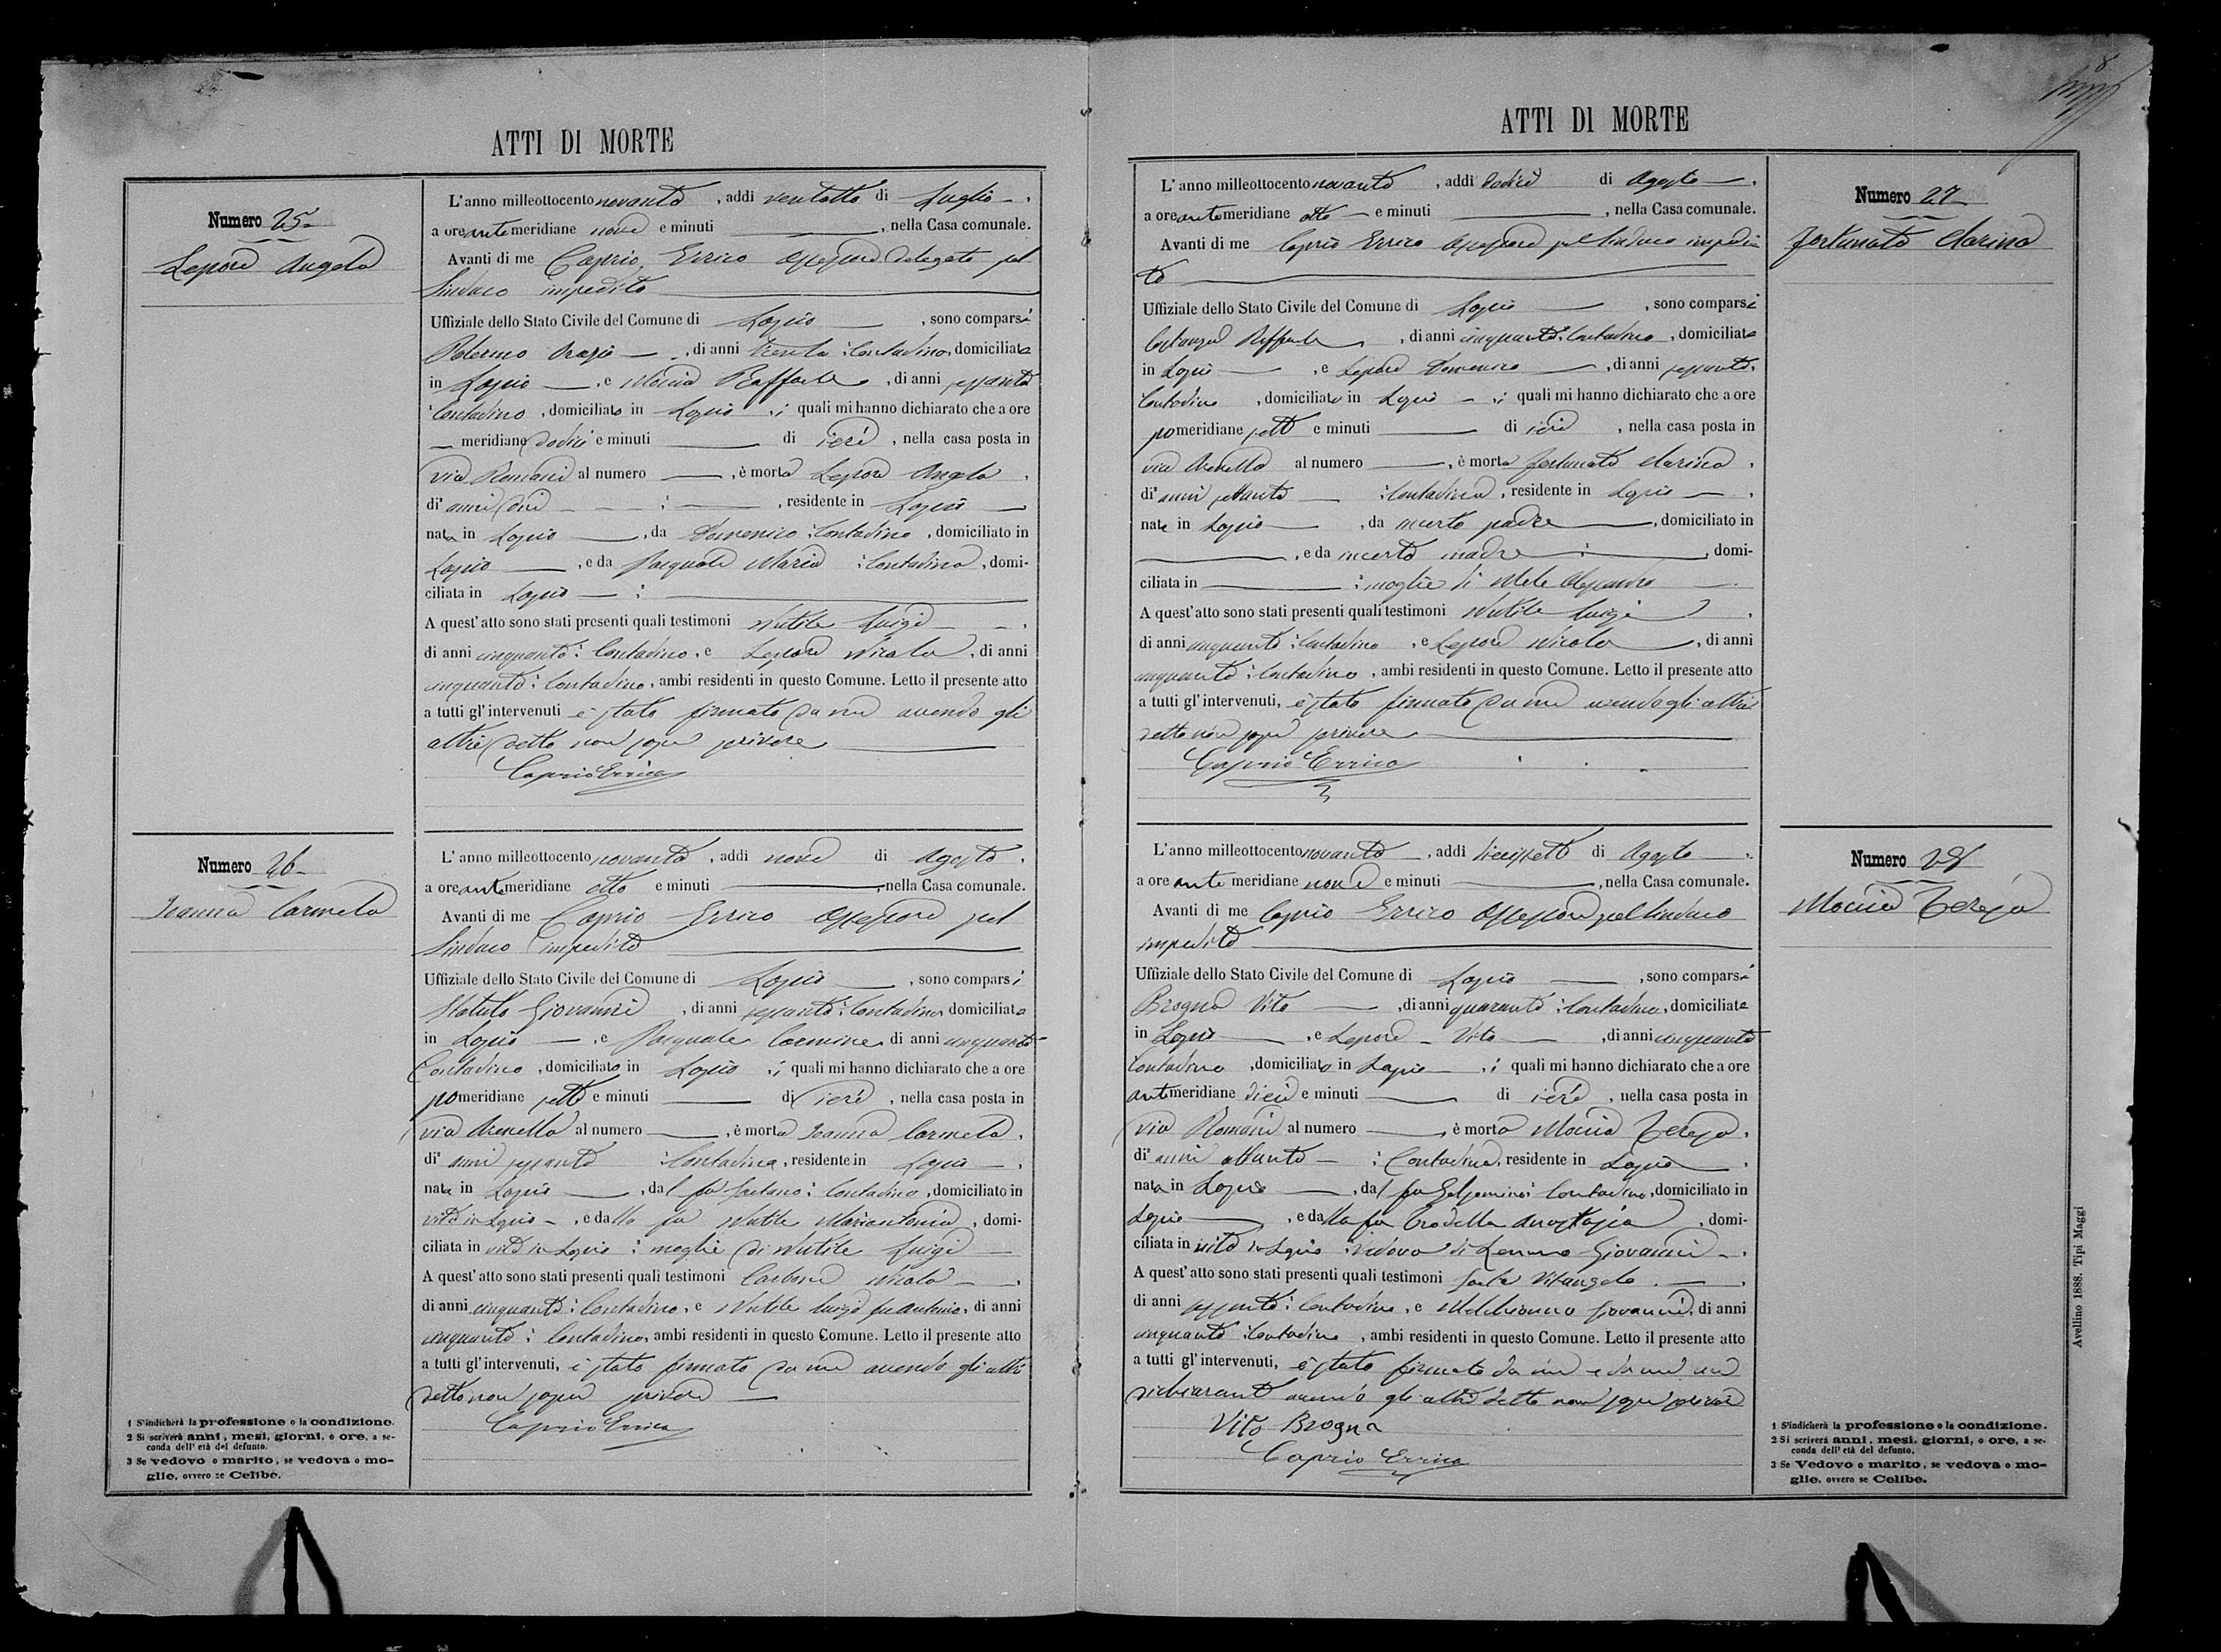 ATTI DI MORTE
Numero 25
Lepore Angela
L'anno milleottocentonovanta, addi ventotto di Luglio,
a ore antemeridiane nove e minuti, nella Casa comunale.
Avanti di me Caprio Errico Assessore delegato pel
Sindaco impedito
Uffiziale dello Stato Civile del Comune di Lapio, sono comparsi
Palermo Orazio, di anni trenta: Contadino, domiciliato
in Lapio, e Moccia Raffaele, di anni sessanta
Contadino, domiciliato in Lapio, i quali mi hanno dichiarato che a ore
meridiane dodici e minuti di ieri, nella casa posta in
via Romani al numero, è morta Lepore Angela,
di anni, residente in Lapio
nata in Lapio, da Domenico: Contadino, domiciliato in
Lapio, e da Pasquale Maria: Contadina, domi-
ciliata in Lapio
A quest'atto sono stati presenti quali testimoni Nutile Luigi,
di anni cinquanta: Contadino, e Lepore Nicola, di anni
cinquanta: Contadino, ambi residenti in questo Comune. Letto il presente atto
a tutti gl'intervenuti è stato firmato da me avendo gli
altri detto non saper scrivere
Caprio Errico
Numero 26
Ieanna Carmela
L'anno milleottocentonovanta, addi nove di Agosto,
a ore antemeridiane otto e minuti, nella Casa comunale.
Avanti di me Caprio Errico Assessore pel
Sindaco impedito
Uffiziale dello Stato Civile del Comune di Lapio, sono comparsi
Statuto Giovanni, di anni sessanta: Contadino, domiciliato
in Lapio, e Pasquale Carmine, di anni cinquanta
Contadino, domiciliato in Lapio, i quali mi hanno dichiarato che a ore
pomeridiane sette e minuti di ieri, nella casa posta in
via Arenella al numero, è morta Ieanna Carmela,
di anni sessanta: Contadina, residente in Lapio,
nata in Lapio, dal fu Gaetano: Contadino, domiciliato in
vita in Lapio, e dalla fu Nutile Mariantonia, domi-
ciliata in vita in Lapio: moglie di Nutile Luigi
A quest'atto sono stati presenti quali testimoni Carbone Nicola,
di anni cinquanta: Contadino, e Nutile Luigi fu Antonio, di anni
cinquanta: Contadino, ambi residenti in questo Comune. Letto il presente atto
a tutti gl'intervenuti, è stato firmato da me avendo gli altri
detto non saper scrivere
Caprio Errico
1 S'indicherà la professione o la condizione.
2 Si scriverà anni, mesi, giorni, o ore, a se-
conda dell'età del defunto.
3 Se vedovo o marito, se vedova o mo-
glie, ovvero se Celibe.
ATTI DI MORTE
Numero 27
Fortunato Clarina
L'anno milleottocentonovanta, addi dodici di Agosto,
a ore antemeridiane otto e minuti, nella Casa comunale.
Avanti di me Caprio Errico Assessore pel Sindaco impedi
to
Uffiziale dello Stato Civile del Comune di Lapio, sono comparsi
Costanza Raffaele, di anni cinquanta: Contadino, domiciliato
in Lapio, e Lepore Domenico, di anni sessanta,
Contadino, domiciliato in Lapio, i quali mi hanno dichiarato che a ore
pomeridiane sette e minuti di ieri, nella casa posta in
via Arenella al numero, è morta Fortunato Clarina,
di anni settanta: Contadina, residente in Lapio,
nata in Lapio, da incerto padre, domiciliato in
, e da incerta madre, domi-
ciliata in: moglie di Mele Alessandro
A quest'atto sono stati presenti quali testimoni Nutile Luigi,
di anni cinquanta: Contadino, e Lepore Nicola, di anni
cinquanta: Contadino, ambi residenti in questo Comune. Letto il presente atto
a tutti gl'intervenuti, è stato firmato da me avendo gli altri
detto non saper scrivere
Caprio Errico
Numero 28
Moccia Teresa
L'anno milleottocentonovanta, addi diecissette di Agosto,
a ore ante meridiane nove e minuti, nella Casa comunale.
Avanti di me Caprio Errico Assessore pel Sindaco
impedito
Uffiziale dello Stato Civile del Comune di Lapio, sono comparsi
Brogna Vito, di anni quaranta: Contadino, domiciliato
in Lapio, e Lepore Vito, di anni cinquanta
Contadino, domiciliato in Lapio, i quali mi hanno dichiarato che a ore
antemeridiane dieci e minuti di ieri, nella casa posta in
via Romani al numero, è morta Moccia Teresa,
di anni ottanta: Contadina, residente in Lapio,
nata in Lapio, dal fu Gelsomino: Contadino, domiciliato in
Lapio, e dalla fu Anastasia, domi-
ciliata in vita in Lapio: vedova di Giovanni
A quest'atto sono stati presenti quali testimoni Vitangelo,
di anni sessanta: Contadino, e Melchionno Giovanni, di anni
cinquanta: Contadino, ambi residenti in questo Comune. Letto il presente atto
a tutti gl'intervenuti, è stato firmato da me e da un
dichiarante avendo gli altri detto non saper scrivere
Vito Brogna
Caprio Errico
1 S'indicherà la professione o la condizione.
2 Si scriverà anni, mesi, giorni, o ore, a se-
conda dell'età del defunto.
3 Se Vedovo o marito, se vedova o mo-
glie, ovvero se Celibe.
Avellino 1888. Tipi Maggi